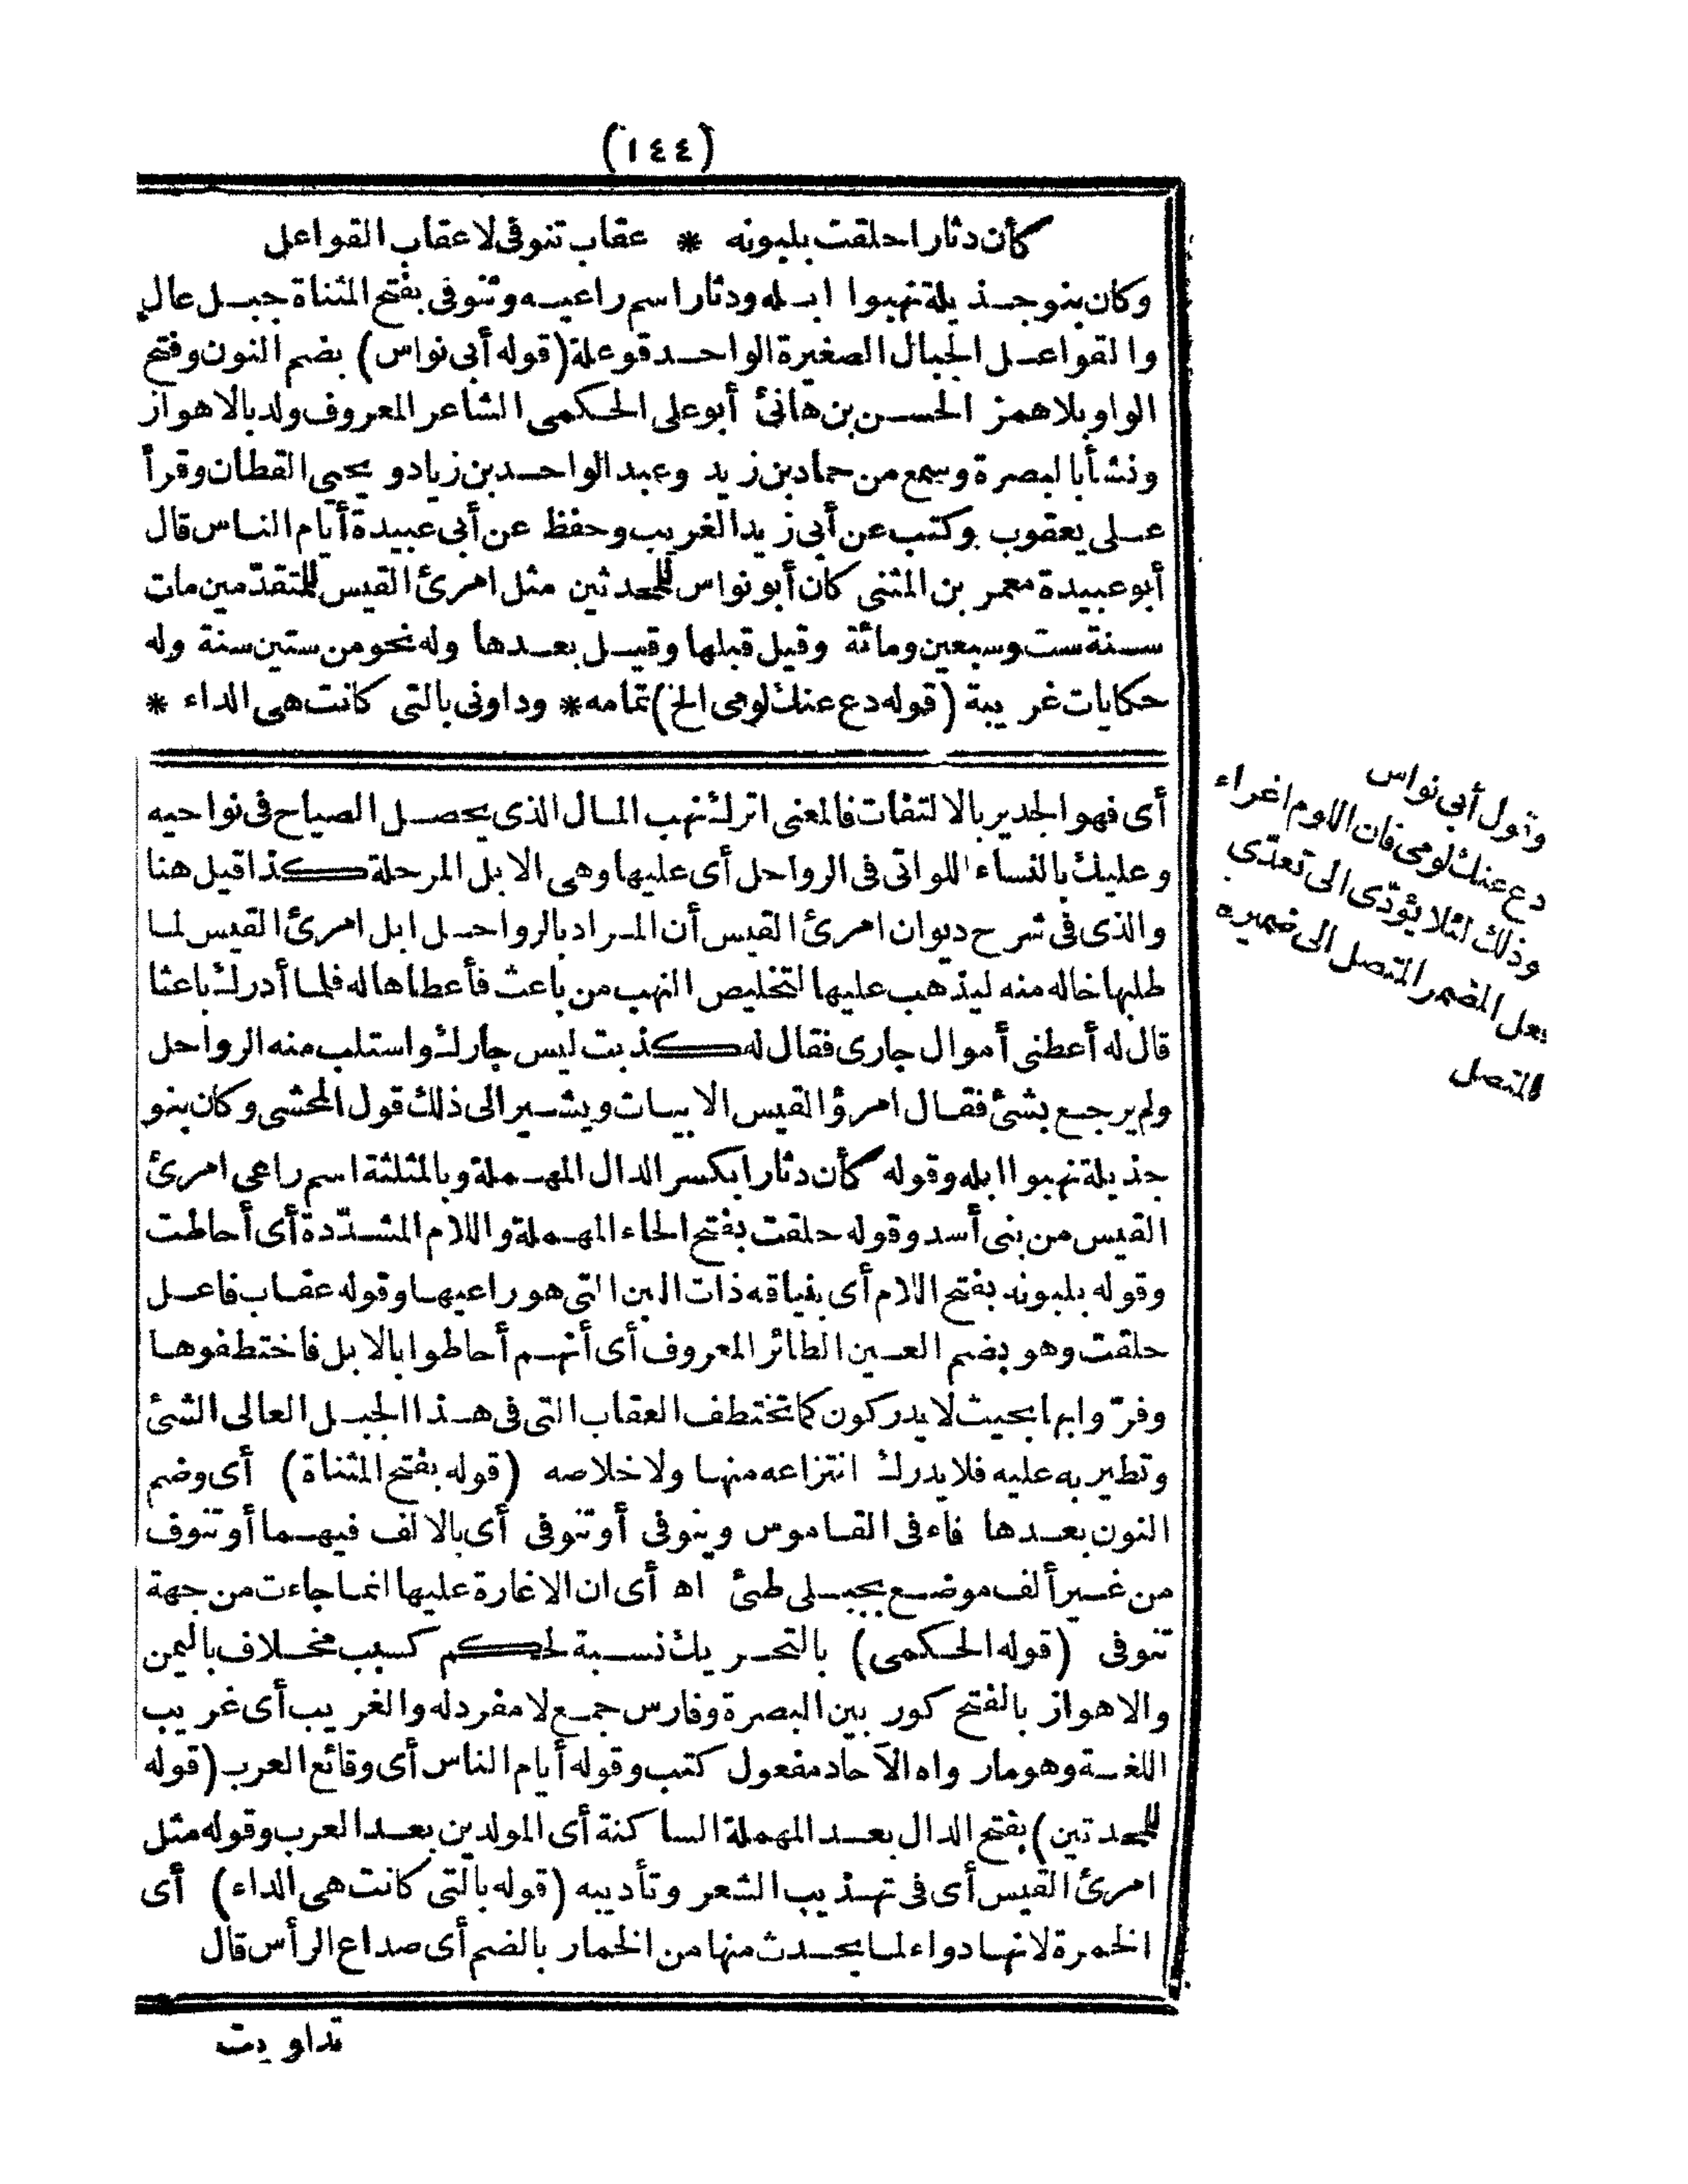 (١٤٤)
كأن دثارا حلقت بلبونه * عقاب تنوفى لا عقاب القواعل
وكان بنو جذيلة نهبوا ابله ودثارا اسم راعيه وتنوفى بفتح المثناة جبل عال
والقواعل الجبال الصغيرة الواحد قوعلة (قوله أبى نواس) بضم النون وفتح
الواو بلا همز الحسن بن هانئ أبو على الحكمى الشاعر المعروف ولد بالاهواز
ونشأ بالبصرة وسمع من حماد بن زيد وعبد الواحد بن زياد و يحيى القطان وقرأ
على يعقوب وكتب عن أبى زيد الغريب وحفظ عن أبى عبيدة أيام الناس قال
أبو عبيدة معمر بن المثنى كان أبو نواس للمحدثين مثل امرئ القيس للمتقدّمين مات
سنة ست وسبعين ومائة وقيل قبلها وقيل بعدها وله نحو من ستين سنة وله
حكايات غريبة (قوله دع عنك لومى الخ) تمامه * وداونى بالتى كانت هى الداء *
وقول أبى نواس
دع عنك لومى فان اللوم اغراء
وذلك لئلا يؤدّى الى تعدّى
فعل المضمر المتصل الى ضميره
المتصل
أى فهو الجدير بالالتفات فالمعنى اترك نهب المال الذى يحصل الصياح فى نواحيه
وعليك بالنساء اللواتى فى الرواحل أى عليها وهى الابل المرحلة كذا قيل هنا
والذى فى شرح ديوان امرئ القيس أن المراد بالرواحل ابل امرئ القيس لما
طلبها خاله منه ليذهب عليها لتخليص النهب من باعث فأعطاها له فلما أدرك باعثا
قال له أعطنى أموال جارى فقال له كذبت ليس جارك واستلب منه الرواحل
ولم يرجع بشئ فقال امرؤ القيس الابيات ويشير الى ذلك قول المحشى وكان بنو
جذيلة نهبوا ابله وقوله كأن دثارا بكسر الدال المهملة وبالمثلثة اسم راعى امرئ
القيس من بنى أسد وقوله حلقت بفتح الحاء المهملة واللام المشدّدة أى أحاطت
وقوله بلبونه بفتح اللام أى بنياقه ذات اللبن التى هو راعيها وقوله عقاب فاعل
حلقت وهو بضم العين الطائر المعروف أى أنهم أحاطوا بالابل فاختطفوها
وفرّوا بها بحيث لا يدركون كما تختطف العقاب التى فى هذا الجبل العالى الشئ
وتطير به عليه فلا يدرك انتزاعه منها ولا خلاصه (قوله بفتح المثناة) أى وضم
النون بعدها فاء فى القاموس وينوفى أو تنوفى أى بالالف فيهما أو تنوف
من غير ألف موضع بجبلى طئ اه أى ان الاغارة عليها انما جاءت من جهة
تنوفى (قوله الحكمى) بالتحريك نسبة لحكم كسبب مخلاف باليمن
والاهواز بالفتح كور بين البصرة وفارس جمع لا مفرد له والغريب أى غريب
اللغة وهو مارواه الآحاد مفعول كتب وقوله أيام الناس أى وقائع العرب (قوله
للمحدثين) بفتح الدال بعد المهملة الساكنة أى المولدين بعد العرب وقوله مثل
امرئ القيس أى فى تهذيب الشعر وتأديبه (قوله بالتى كانت هى الداء) أى
الخمرة لانها دواء لما يحدث منها من الخمار بالضم أى صداع الرأس قال
تداويت